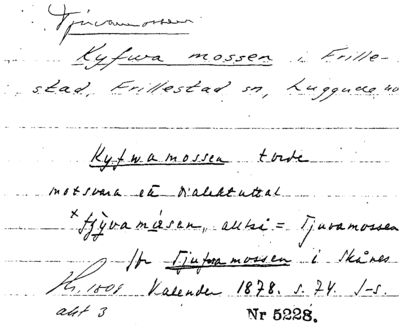 Tjuvamossen
Kyfwa mossen i Frille-
stad, Frillestad sn, Luggude hd
Kyfwamossen torde
motsvara ett dialektuttal
*tjyvamåsen, alltså = Tjuvamossen
Jfr Tjufwamossen i Skånes
Kalender 1878. s. 74. J-s.
akt 3
Nr 5228.